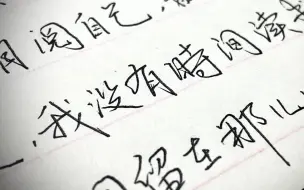 阅自己,
一.我没有時间读
留在那儿